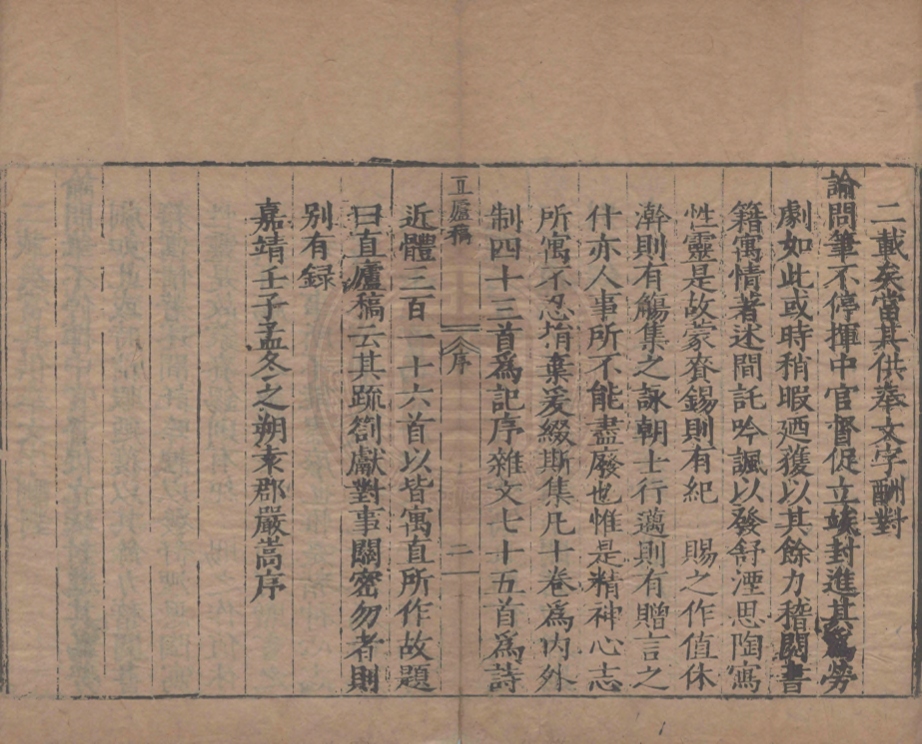 二載矣當其供奉文字酬對
諭問筆不停揮中官督促立竢封進其為勞
劇如此或時稍暇廼獲以其餘力稽閱書
籍寓情著述間託吟諷以發舒湮思陶寫
性靈是故蒙賚錫則有紀　賜之作值休
澣則有觴集之詠朝士行邁則有贈言之
什亦人事所不能盡廢也惟是精神心志
所寓不忍捐棄爰綴斯集凡十卷為内外
制四十三首爲記序雜文七十五首爲詩
直廬稿　序　二
近體三百一十六首以皆寓直所作故題
曰直廬稿云其疏劄獻對事關密勿者則
别有録
嘉靖壬子孟冬之朔袁郡嚴嵩序